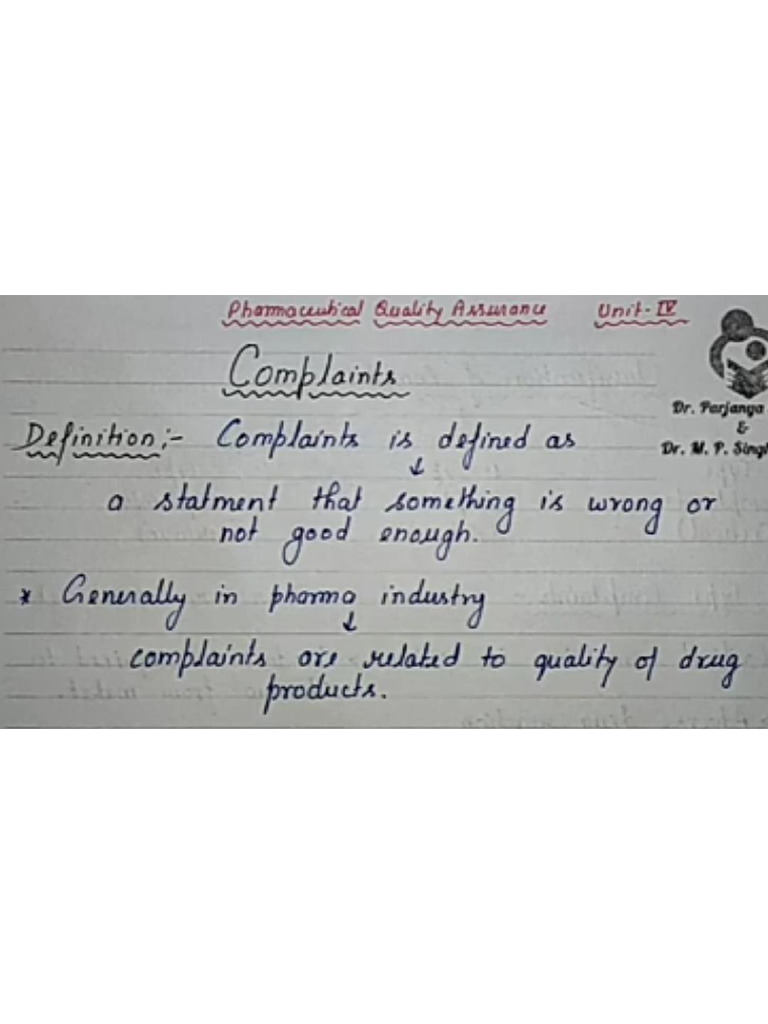 Pharmaceutical Quality Assurance Unit-IV
Complaints
Dr. Parjanya
&
Dr. M. P. Singh
Definition:- Complaints is defined as
↓
a statment that something is wrong or
not good enough.
* Generally in pharma industry
↓
complaints are related to quality of drug
products.